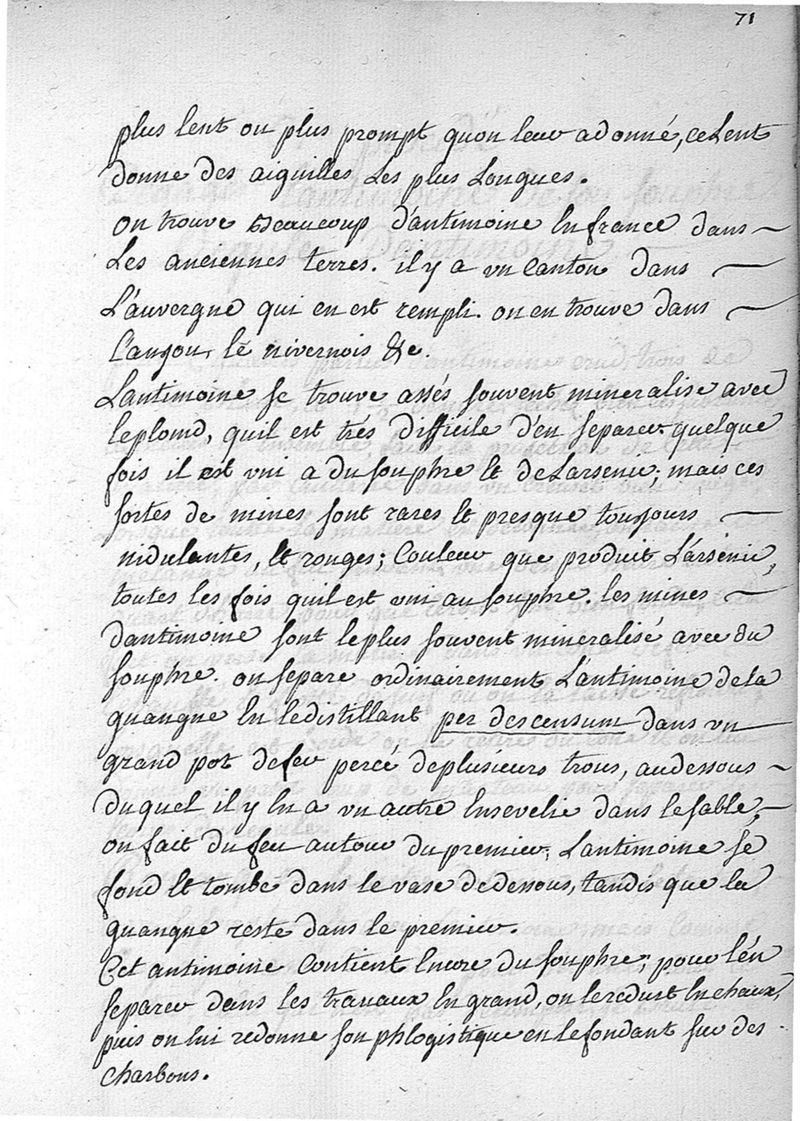 71
plus lent ou plus prompt quon leur a donné, ce lent
donne des aiguilles les plus longues.
on trouve beaucoup d'antimoine en france dans
les anciennes terres. il y a un canton dans
L'auvergne qui en est rempli. on en trouve dans
l'anjou, le nivernois &c.
Lantimoine se trouve assés souvent mineralise avec
le plomb, quil est trés difficile d'en separer quelque
fois il est uni a du souphre et de Larsenic; mais ces
sortes de mines sont rares et presque toujours
nidulantes, et rouges; couleur que produit L'arsénic,
toutes les fois quil est uni au souphre. les mines
dantimoine sont le plus souvent mineralisé avec du
souphre. on separe ordinairement L'antimoine de la
guangne en le distillant per descensum dans un
grand pot de feu percé de plusieurs trous, au dessous
du quel il y en a un autre ensevelie dans le sable,
on fait du feu autour du premier, Lantimoine se
fond et tombe dans le vase de dessous, tandis que la
guangne reste dans le premier.
Cet antimoine contient encore du souphre; pour l'én
separer dans les travaux en grand, on le reduit en chaux,
puis on lui redonne son phlogistique en le fondant sur des
charbons.